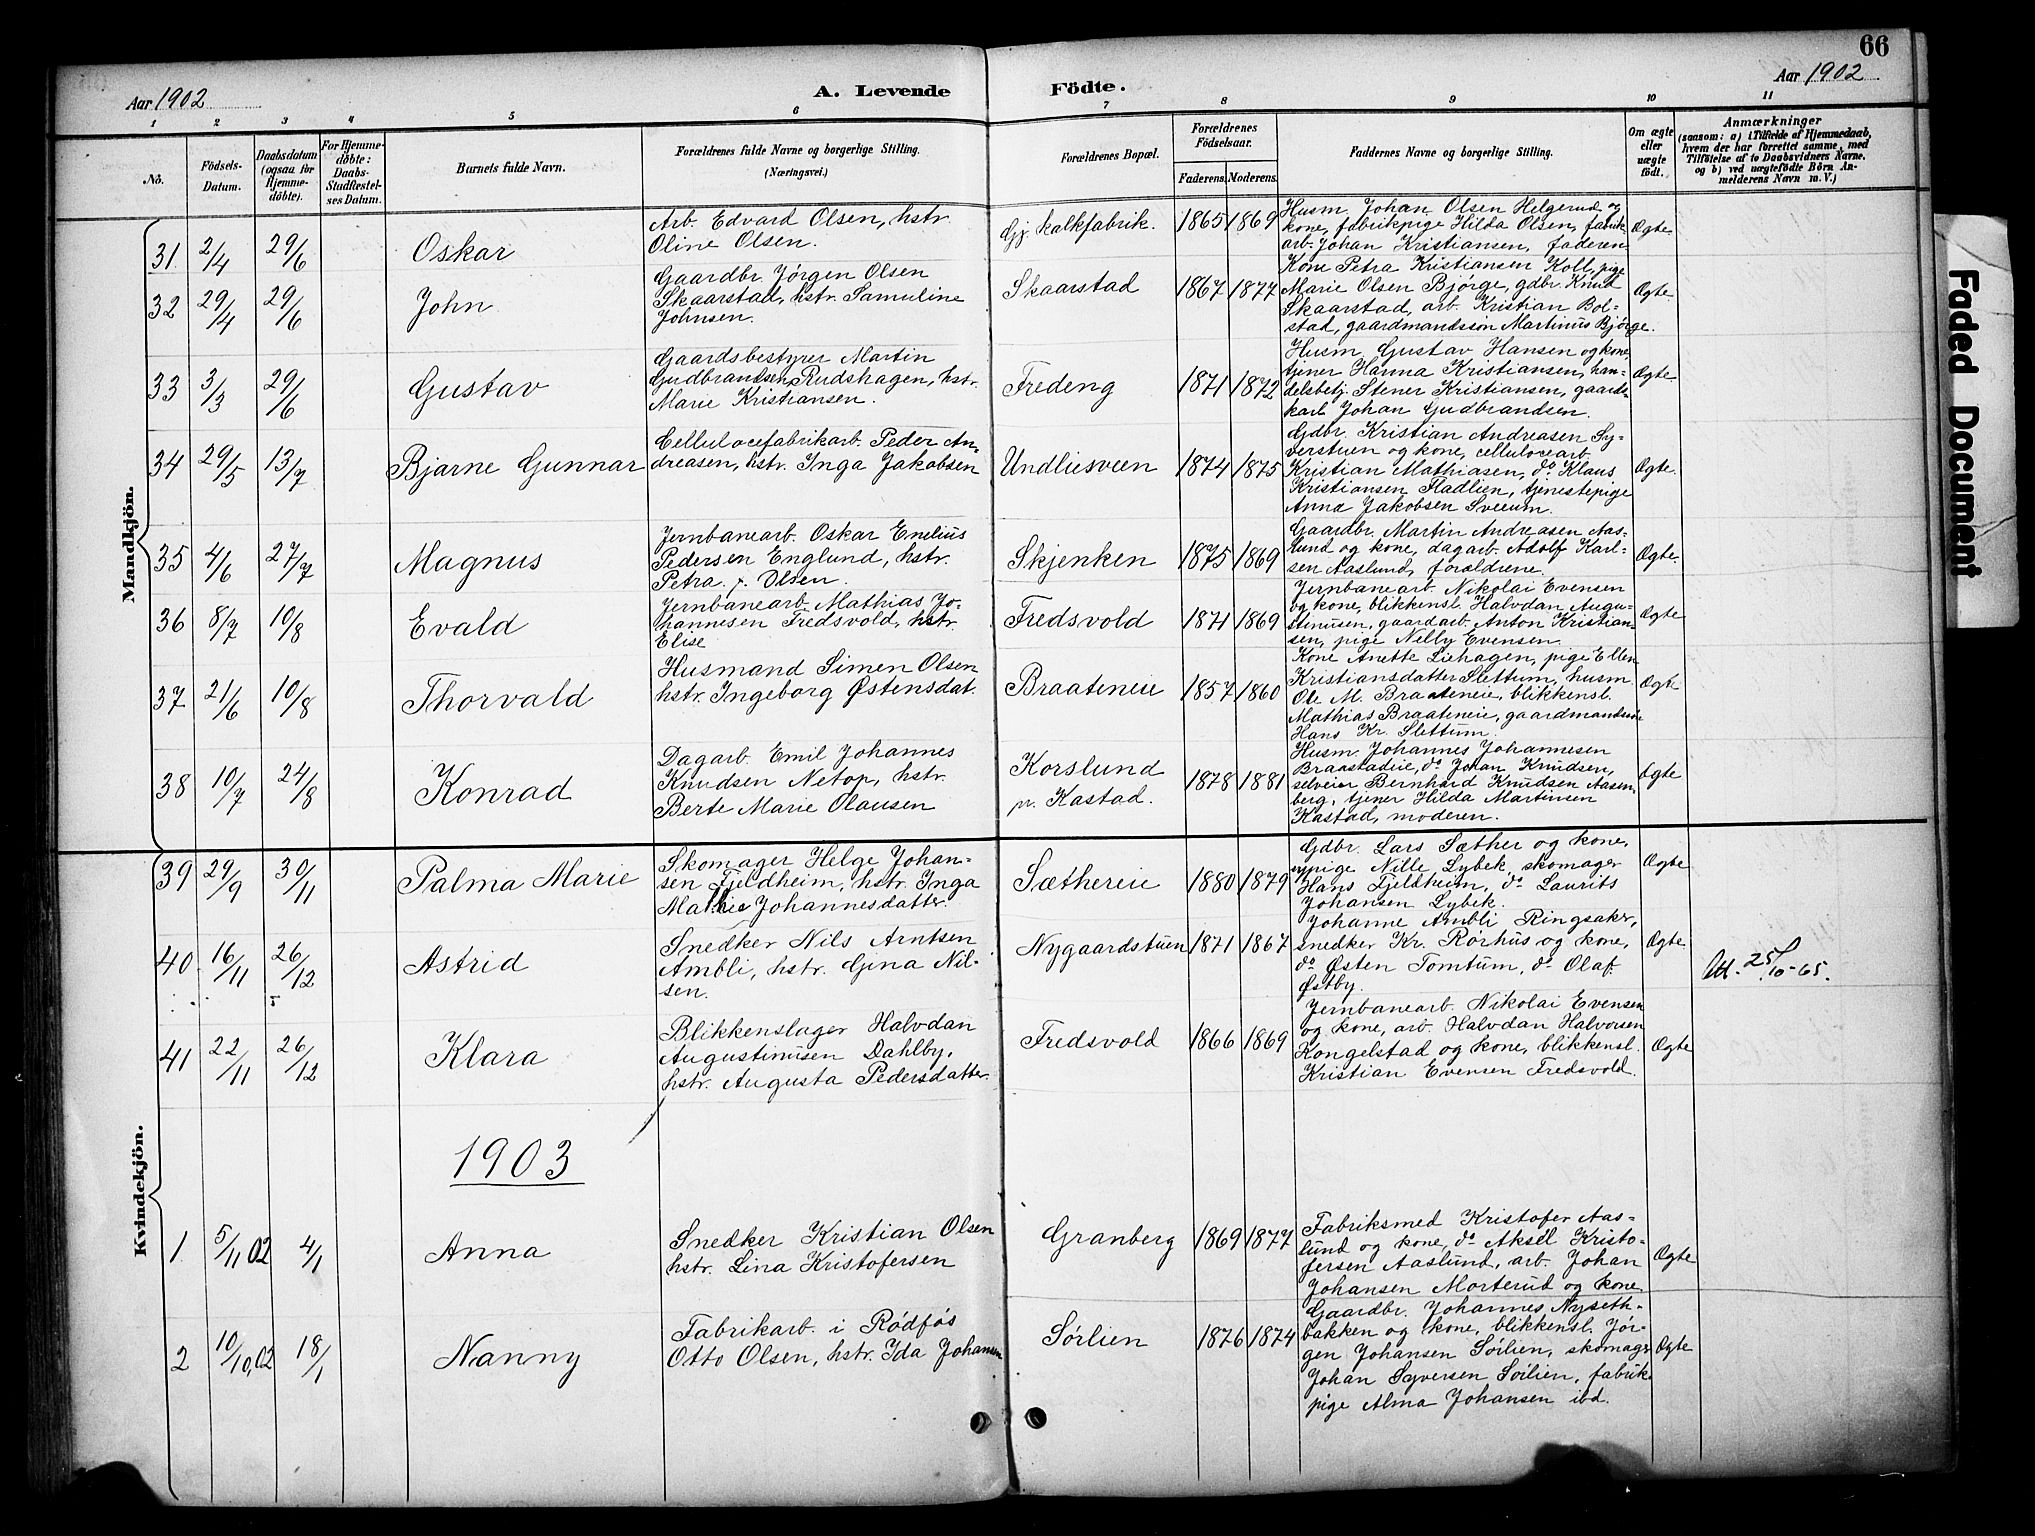 66
Aar 1902
A. Levende Födte.
Aar 1902
1 2 3 4 5 6 7 8 9 10 11
No.
Födsels-
Datum.
Daabsdatum
(ogsaa for
Hjemme-
döbte).
For Hjemme-
döbte:
Daabs-
Stadfæstel-
ses Datum.
Burnets fulde Navn.
Forældrenes fulde Navne og borgerlige Stilling.
(Næringsvei.)
Forældrenes Bopæl.
Forældrenes
Födselsaar.
Faderens. Moderens.
Faddernes Navne og borgerlige Stilling.
Om ægte
eller
uægte
födt.
Anmærkninger
(saasom: a) i Tilfælde af Hjemmedaab,
hvem der har forrettet samme, med
Tilföielse af to Daabsvidners Navne,
og b) ved uægtefödte Börn An-
melderens Navn m. V.)
Mandkjön.
31 2/4 29/6 Oskar
Arb. Edvard Olsen, hstr.
Oline Olsen.
Gj. kalkfabrik. 1865 1869
Husm. Johan Olsen Helgerud og
kone, fabrikpige Hilda Olsen, fabrik-
arb. Johan Kristiansen, faderen
Ægte
32 29/4 29/6 John
Gaardbr. Jörgen Olsen
Skaarstad, hstr. Samuline
Johnsen.
Skaarstad 1867 1877
Kone Petra Kristiansen Koll, pige
Marie Olsen Bjørge, gdbr. Knud
Skaarstad, arb. Kristian Bol-
stad, gaardmandssøn Martinus Bjørge.
Ægte
33 3/3 29/6 Gustav
Gaardsbestyrer Martin
Gudbrandsen Rudshagen, hstr.
Marie Kristiansen.
Fredeng 1871 1872
Husm. Gustav Hansen og kone,
tjener Hanna Kristiansen, han-
delsbetj. Stener Kristiansen, gaards-
karl Johan Gudbrandsen.
Ægte
34 29/5 13/7 Bjarne Gunnar
Cellulocefabrikarb. Peder An-
dreasen, hstr. Inga Jakobsen
Undliesveen 1874 1875
Gdbr. Kristian Andreasen Sy-
verstuen og kone, cellulocearb.
Kristian Mathiasen, do Klaus
Kristiansen Fladlien, tjenestepige
Anna Jakobsen Sveum.
Ægte
35 4/6 27/7 Magnus
Jernbanearb. Oskar Emilius
Pedersen Englund, hstr.
Petra f. Olsen.
Skjenken 1875 1869
Gaardbr. Martin Andreasen Aas-
lund og kone, dagarb. Adolf Karl-
sen Aaslund, forældrene
Ægte
36 8/7 10/8 Evald
Jernbanearb. Mathias Jo-
hannesen Fredsvold, hstr.
Elise
Fredsvold 1871 1869
Jernbanearb. Nikolai Evensen
og kone, blikkensl. Halvdan Augu-
stinusen, gaardarb. Anton Kristian-
sen, pige Nelly Evensen
Ægte
37 21/6 10/8 Thorvald
Husmand Simen Olsen
hstr. Ingeborg Østensdat.
Braateneie 1857 1860
Kone Anette Liehagen, pige Ellen
Kristiansdatter Slettum, husm.
Ole M. Braateneie, blikkensl.
Mathias Braateneie, gaardmandssøn
Hans Kr. Slettum.
Ægte
38 10/7 24/8 Konrad
Dagarb. Emil Johannes
Knudsen Netop, hstr.
Berte Marie Olausen
Korslund
pr. Kastad. 1878 1881
Husm. Johannes Johannesen
Braastadeie, do Johan Knudsen,
selveier Bernhard Knudsen Aasen-
berg, tjener Hilda Martinsen
Kastad, moderen.
Ægte
Kvindekjön.
39 29/9 30/11 Palma Marie
Skomager Helge Johan-
sen Fjeldheim, hstr. Inga
Mathea Johannesdatter.
Sæthereie 1880 1879
Gdbr. Lars Sæther og kone,
pige Nille Lybek, skomager
Hans Fjeldheim, do Laurits
Johansen Lybek.
Ægte
40 16/11 26/12 Astrid
Snedker Nils Arntsen
Ambli, hstr. Gina Nil-
sen.
Nygaardstuen 1871 1867
Johanne Ambli Ringsaker,
snedker Kr. Rørhus og kone,
do Østen Tomtum, do Olaf
Østby.
Ægte
Att. 25/10-65.
41 22/11 26/12 Klara
Blikkenslager Halvdan
Augustinusen Dahlby,
hstr. Augusta Pedersdatter.
Fredsvold 1866 1869
Jernbanearb. Nikolai Evensen
og kone, arb. Halvdan Halvorsen
Kongelstad og kone, blikkensl.
Kristian Evensen Fredsvold.
Ægte
1903
1 5/11 02 4/1 Anna
Snedker Kristian Olsen
hstr. Lina Kristofersen
Granberg 1869 1877
Fabriksmed Kristofer Aas-
lund og kone, do Aksel Kristo-
fersen Aaslund, arb. Johan
Johansen Morterud og kone
Ægte
2 10/10,02 18/1 Nanny
Fabrikarb. i Rødfos
Otto Olsen, hstr. Ida Johansen
Sørlien 1876 1874
Gaardbr. Johannes Nyseth-
bakken og kone, blikkensl. Jør-
gen Johansen Sørlien, skomager
Johan Syversen Sørlien, fabrik-
pige Alma Johansen ibd.
Ægte
Faded Document